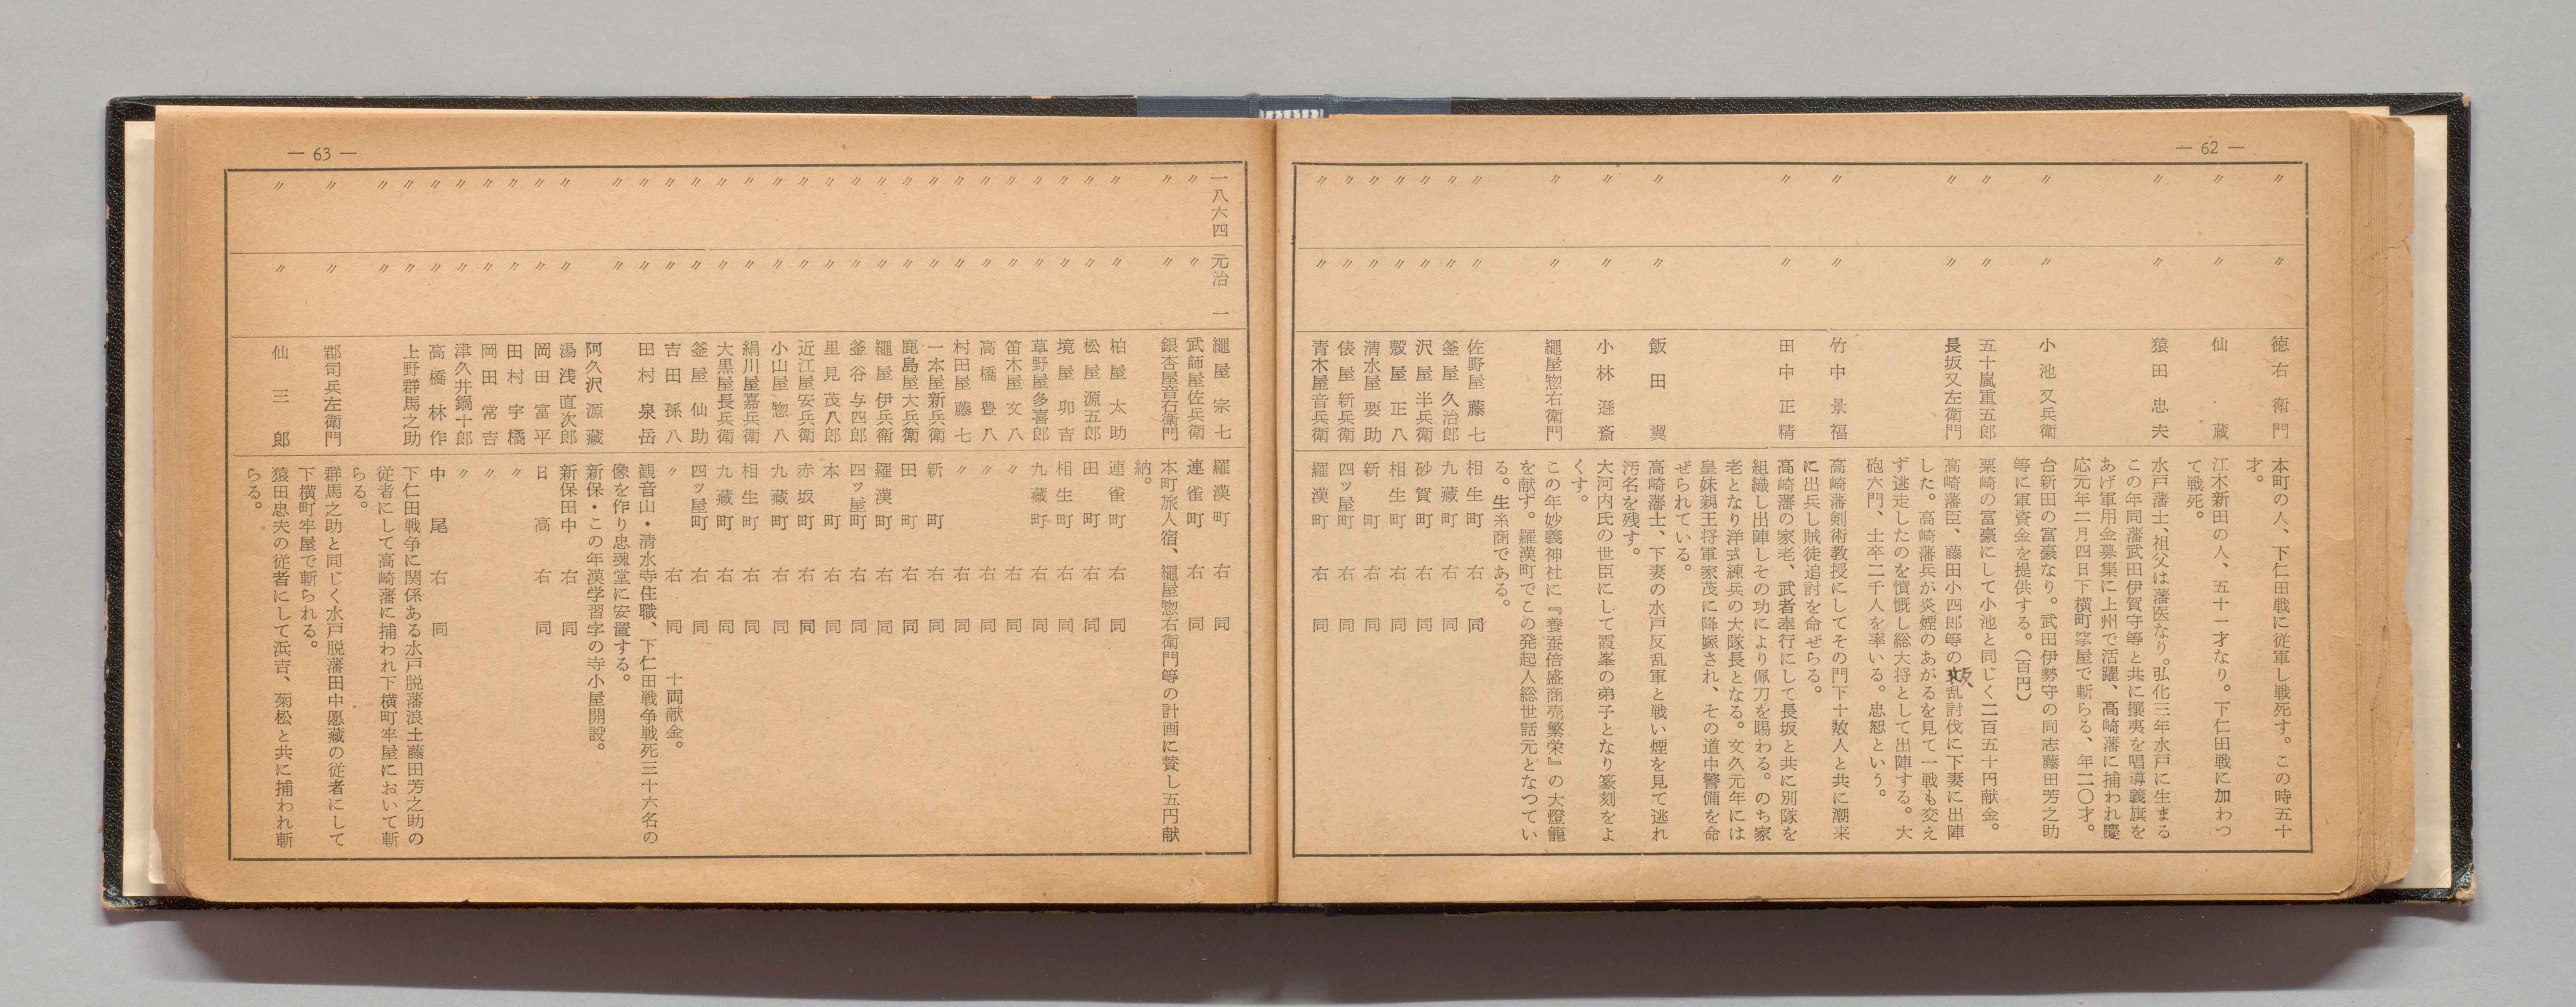 — 62 —
〃 〃 徳右衛門 本町の人、下仁田戦に従軍し戦死す。この時五十
才。
〃 〃 仙蔵 江木新田の人、五十一才なり。下仁田戦に加わつ
て戦死。
〃 〃 猿田忠夫 水戸藩士、祖父は藩医なり。弘化三年水戸に生まる
この年同藩武田伊賀守等と共に攘夷を唱導義旗を
あげ軍用金募集に上州で活躍、高崎藩に捕われ慶
応元年二月四日下横町牢屋で斬らる、年二〇才。
〃 〃 小池又兵衛 台新田の富豪なり。武田伊勢守の同志藤田芳之助
等に軍資金を提供する。(百円)
〃 〃 五十嵐重五郎 栗崎の富豪にして小池と同じく二百五十円献金。
〃 〃 長坂又左衛門 高崎藩臣、藤田小四郎等の叛乱討伐に下妻に出陣
した。高崎藩兵が炎煙のあがるを見て一戦も交え
ず逃走したのを憤慨し総大将として出陣する。大
砲六門、士卒二千人を率いる。忠恕という。
〃 〃 竹中景福 高崎藩剣術教授にしてその門下十数人と共に潮来
に出兵し賊徒追討を命ぜらる。
〃 〃 田中正精 高崎藩の家老、武者奉行にして長坂と共に別隊を
組織し出陣しその功により佩刀を賜わる。のち家
老となり洋式練兵の大隊長となる。文久元年には
皇妹親王将軍家茂に降嫁され、その道中警備を命
ぜられている。
〃 〃 飯田翼 高崎藩士、下妻の水戸反乱軍と戦い煙を見て逃れ
汚名を残す。
〃 〃 小林遜斎 大河内氏の世臣にして霞峯の弟子となり篆刻をよ
くす。
〃 〃 繩屋惣右衛門 この年妙義神社に『養蚕倍盛商売繁栄』の大燈籠
を献ず。羅漢町でこの発起人総世話元となつてい
る。生糸商である。
〃 〃 佐野屋藤七 相生町 右同
〃 〃 釜屋久治郎 九蔵町 右同
〃 〃 沢屋半兵衛 砂賀町 右同
〃 〃 穀屋正八 相生町 右同
〃 〃 清水屋要助 新町 右同
〃 〃 俵屋新兵衛 四ッ屋町 右同
〃 〃 青木屋音兵衛 羅漢町 右同
— 63 —
一八六四 元治一 繩屋宗七 羅漢町 右同
〃 〃 武師屋佐兵衛 連雀町 右同
〃 〃 銀杏屋音右衛門 本町旅人宿、繩屋惣右衛門等の計画に賛し五円献
納。
〃 〃 柏屋太助 連雀町 右同
〃 〃 松屋源五郎 田町 右同
〃 〃 境屋卯吉 相生町 右同
〃 〃 草野屋多喜郎 九蔵町 右同
〃 〃 笛木屋文八 〃 右同
〃 〃 高橋豊八 〃 右同
〃 〃 村田屋藤七 〃 右同
〃 〃 一本屋新兵衛 新町 右同
〃 〃 鹿島屋大兵衛 田町 右同
〃 〃 繩屋伊兵衛 羅漢町 右同
〃 〃 釜谷与四郎 四ッ屋町 右同
〃 〃 里見茂八郎 本町 右同
〃 〃 近江屋安兵衛 赤坂町 右同
〃 〃 小山屋惣八 九蔵町 右同
〃 〃 絹川屋嘉兵衛 相生町 右同
〃 〃 大黒屋長兵衛 九蔵町 右同
〃 〃 釜屋仙助 四ッ屋町 右同
〃 〃 吉田孫八 〃 右同 十両献金。
〃 〃 田村泉岳 観音山・清水寺住職、下仁田戦争戦死三十六名の
像を作り忠魂堂に安置する。
阿久沢源蔵 新保・この年漢学習字の寺小屋開設。
〃 〃 湯浅直次郎 新保田中 右同
〃 〃 岡田富平 日高 右同
〃 〃 田村宇橘 〃
〃 〃 岡田常吉 〃
〃 〃 津久井鍋十郎 〃
〃 〃 高橋林作 中尾 右同
〃 〃 上野群馬之助 下仁田戦争に関係ある水戸脱藩浪士藤田芳之助の
〃 〃 従者にして高崎藩に捕われ下横町牢屋において斬
らる。
〃 〃 郡司兵左衛門 群馬之助と同じく水戸脱藩田中愿蔵の従者にして
下横町牢屋で斬られる。
〃 〃 仙三郎 猿田忠夫の従者にして浜吉、菊松と共に捕われ斬
らる。